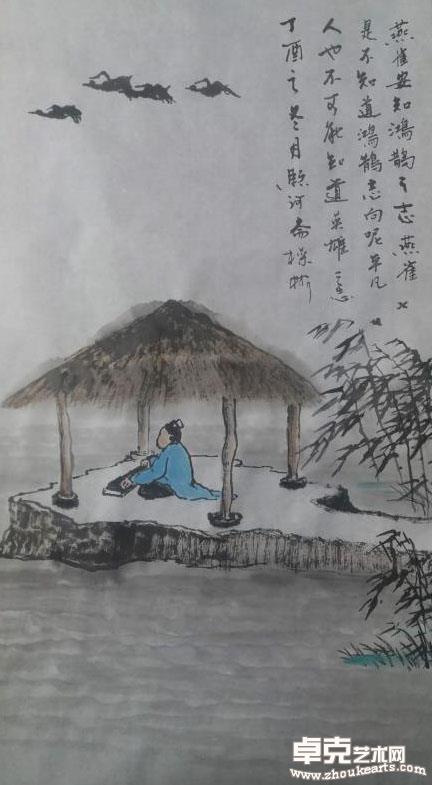 燕雀安知鴻鵠之志燕雀
是不知道鴻鵠志向呢平凡
人也不可能知道英雄之志
丁酉之冬月河斋
卓克艺术网
www.zhoukearts.com